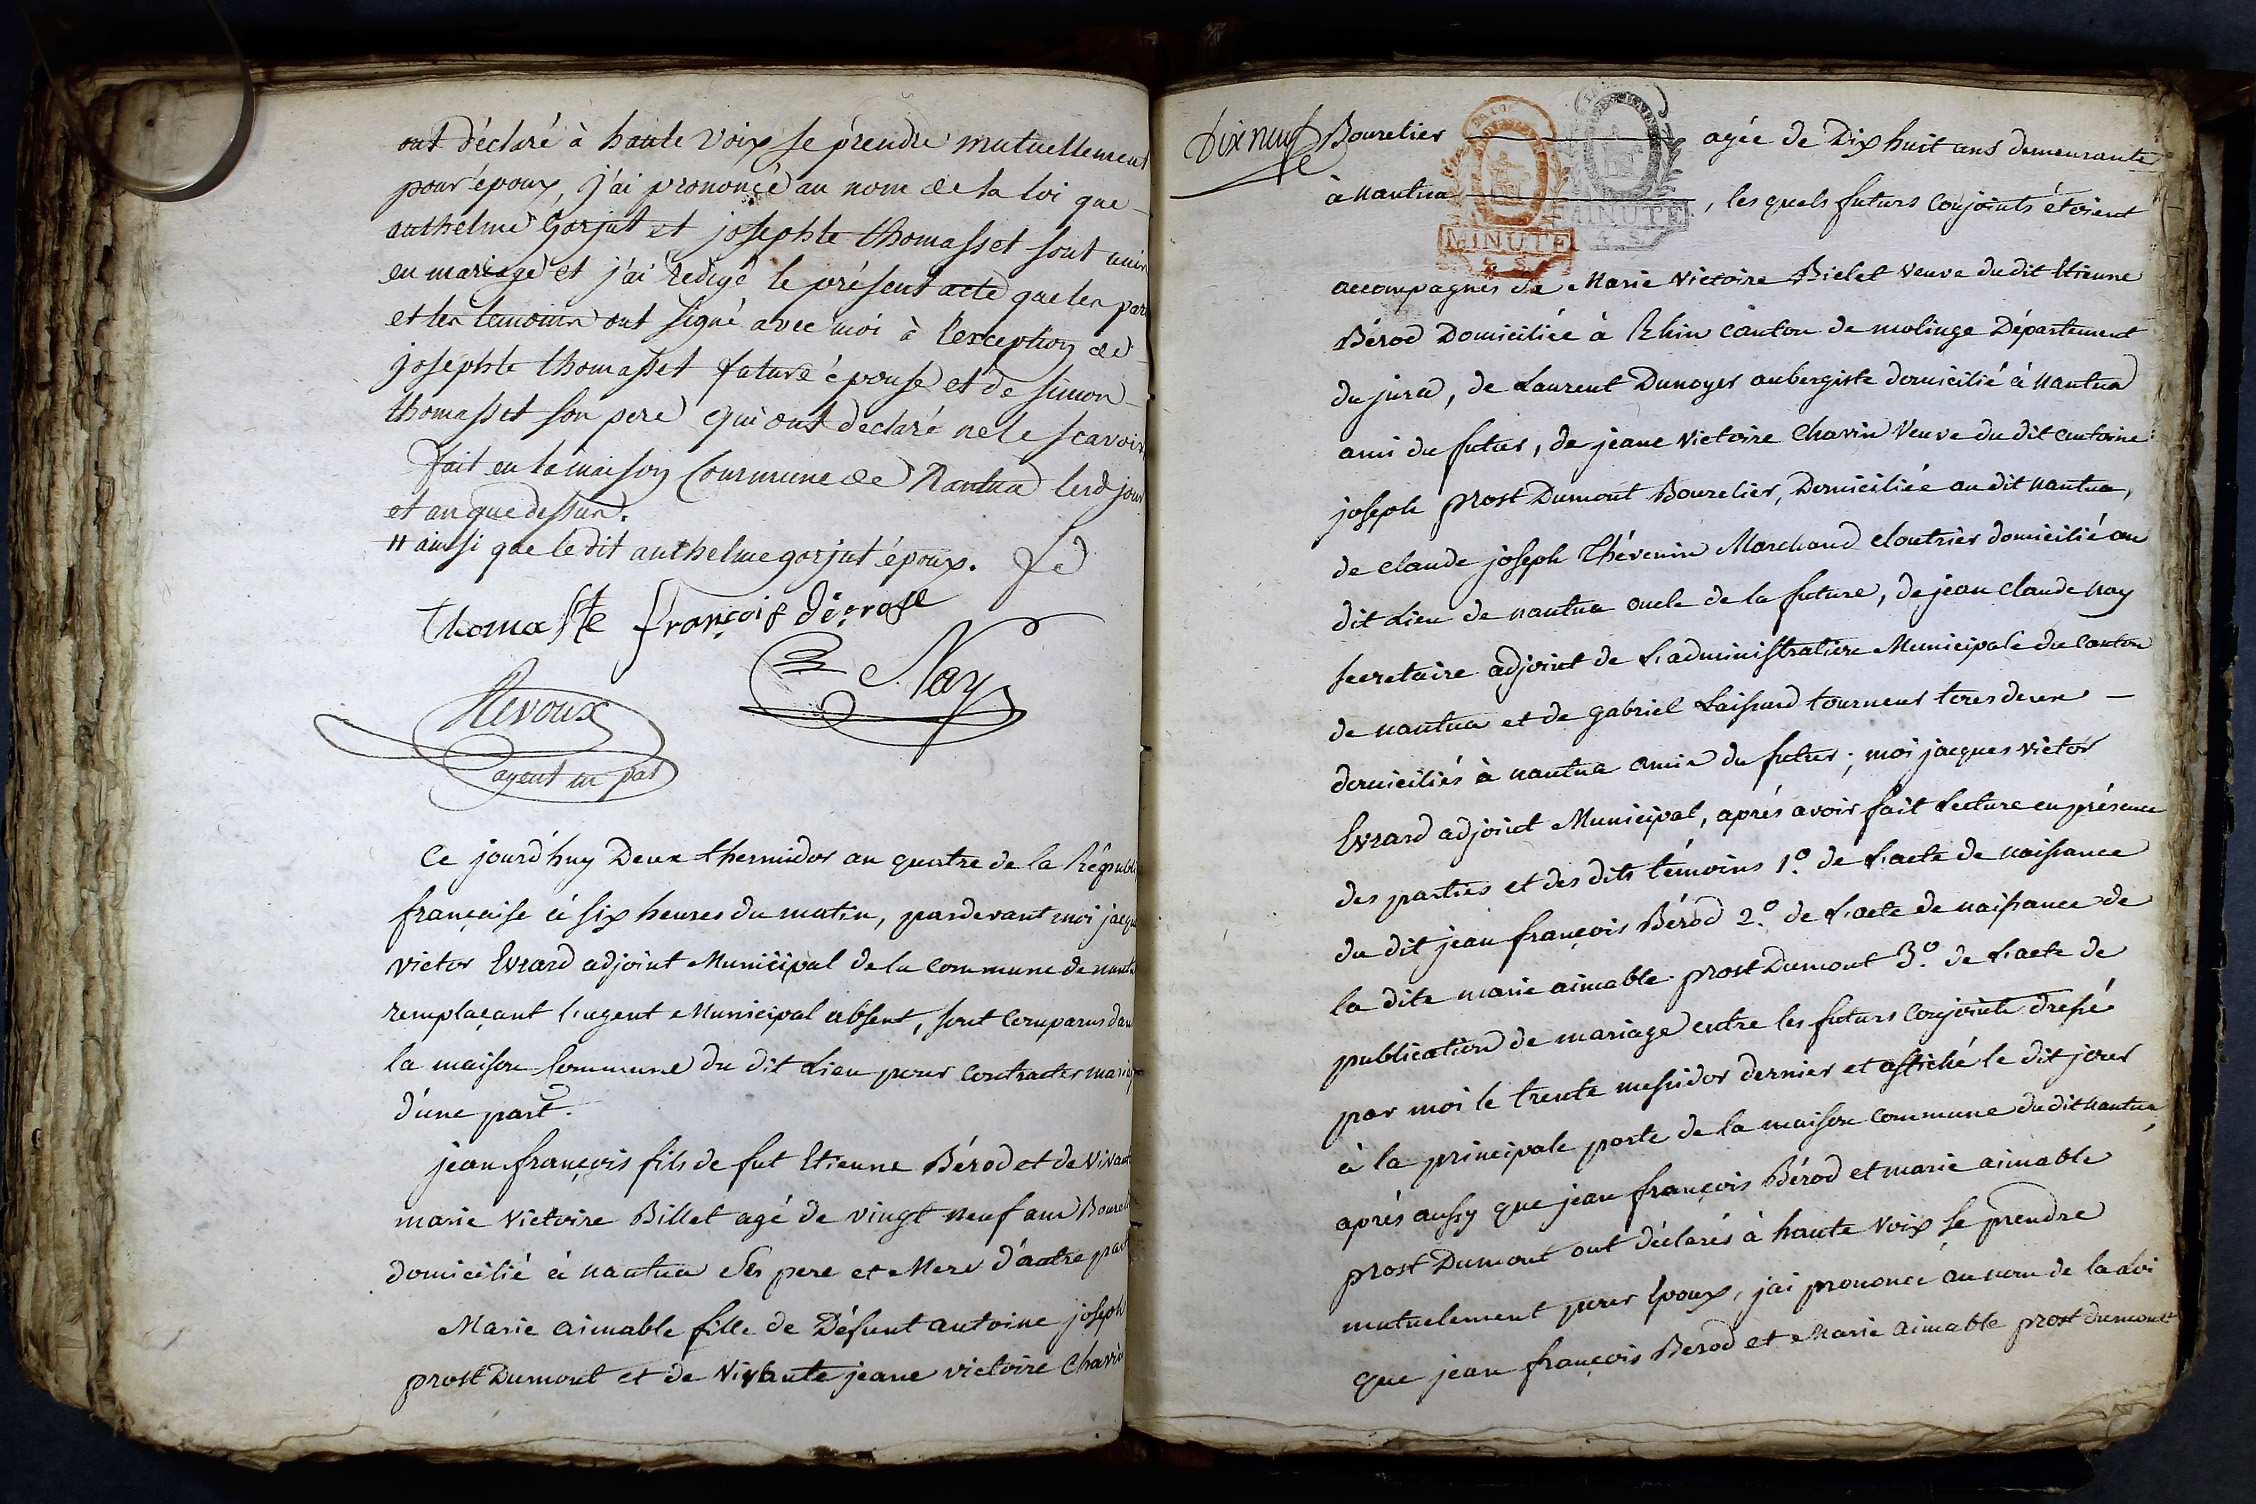 ont déclaré à haute voix se prendre mutuellement
pour époux, j'ai prononcé au nom de la loi que
anthelme Gorjut et josephte thomasset sont unis
en mariage et j'ai rédigé le présent acte que les par
et les temoins ont signé avec moi à l'exception de
josephte thomasset future épouse et de simon
thomasset son pere qui ont declaré ne le scavoir
fait en la maison Commune de Nantua lesd jour
et an que dessus.
" ainsi que le dit anthelme gorjut époux.
thomasste françois dégrose
Nay
Revoux
agent m pal
Ce jourd'huy Deux thermidor an quatre de la Républi
française à six heures du matin, pardevant moi jacqu
victor Evrard adjoint Municipal de la commune de nantu
remplaçant l'agent Municipal absent, sont comparus dan
la maison commune du dit Lieu pour contracter maria
d'une part.
jean françois fils de fut Etienne Bérod et de vivant
marie victoire Billet agé de vingt neuf ans Boureli
domicilié à nantua Ses pere et Mere d'autre part
Marie aimable fille de Défunt antoine joseph
prost Dumont et de Vivante jeane victoire Chavin
Dix neuf
Bourelier agée de Dix huit ans demeurante
à nantua, les quels futurs conjoints étoient
MINUTE
MINUTE
accompagnés de Marie Victoire Bielet veuve du dit Etienne
Bérod Domiciliée à Rhin canton de molinge Département
du jura, de Laurent Dunoyer aubergiste domicilié à nantua
ami du futur, de jeane victoire Chavin Veuve du dit antoine
joseph prost Dumont Bourelier, Domiciliée au dit nantua,
de claude joseph Thévenin Marchand cloutrier domicilié au
dit Lieu de nantua oncle de la future, de jean claude nay
secretaire adjoint de L'administration Municipale du canton
de nantua et de gabriel Laissard tourneur tous deux
domiciliés à nantua amis du futur; moi jacques victor
Evrard adjoint Municipal, aprés avoir fait Lecture en présence
des parties et des dits témoins 1.º de L'acte de naissance
du dit jean françois Bérod 2.º de L'acte de naissance de
la dite marie aimable prost Dumont 3.º de L'acte de
publication de mariage entre les futurs conjoints dressé
par moi le trente messidor dernier et affiché le dit jour
à la principale porte de la maison commune du dit nantua,
aprés aussy que jean françois Bérod et marie aimable
prost Dumont ont déclarés à haute voix se prendre
mutuelement pour Epoux, j'ai prononcé au nom de la Loi
que jean françois Berod et Marie aimable prost dumont